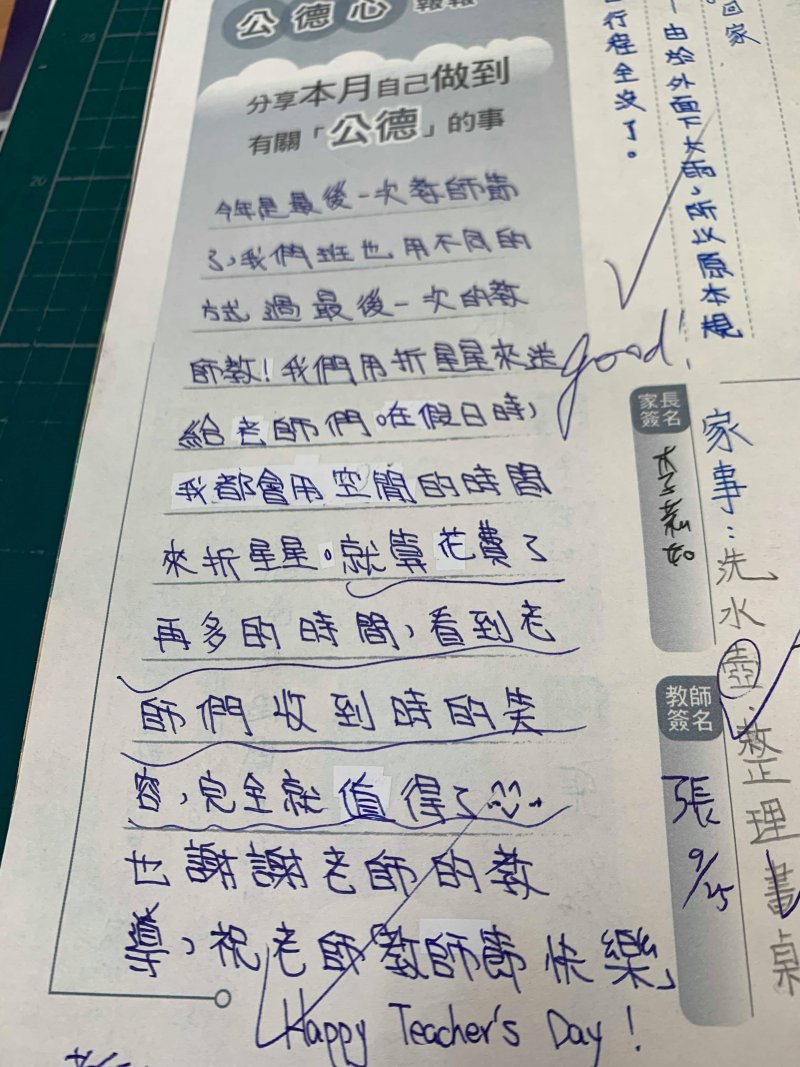 公德心
報報
分享本月自己做到
有關「公德」的事
今年是最後一次教師節
了,我們班也用不同的
方式過最後一次的教
師教!我們用折星星來送
給老師們。在假日時,
我都會用空閒的時間
來折星星。就算花費了
再多的時間,看到老
師們收到時的笑
容,完全就值得了
也謝謝老師的教
導,祝老師「教師節快樂」
Happy Teacher's Day!
good!
回家
由於外面下大雨,所以原本規
行程全沒了。
家長
簽名
家事:洗水壺、整理書桌
教師
簽名
張
9/25
25
20